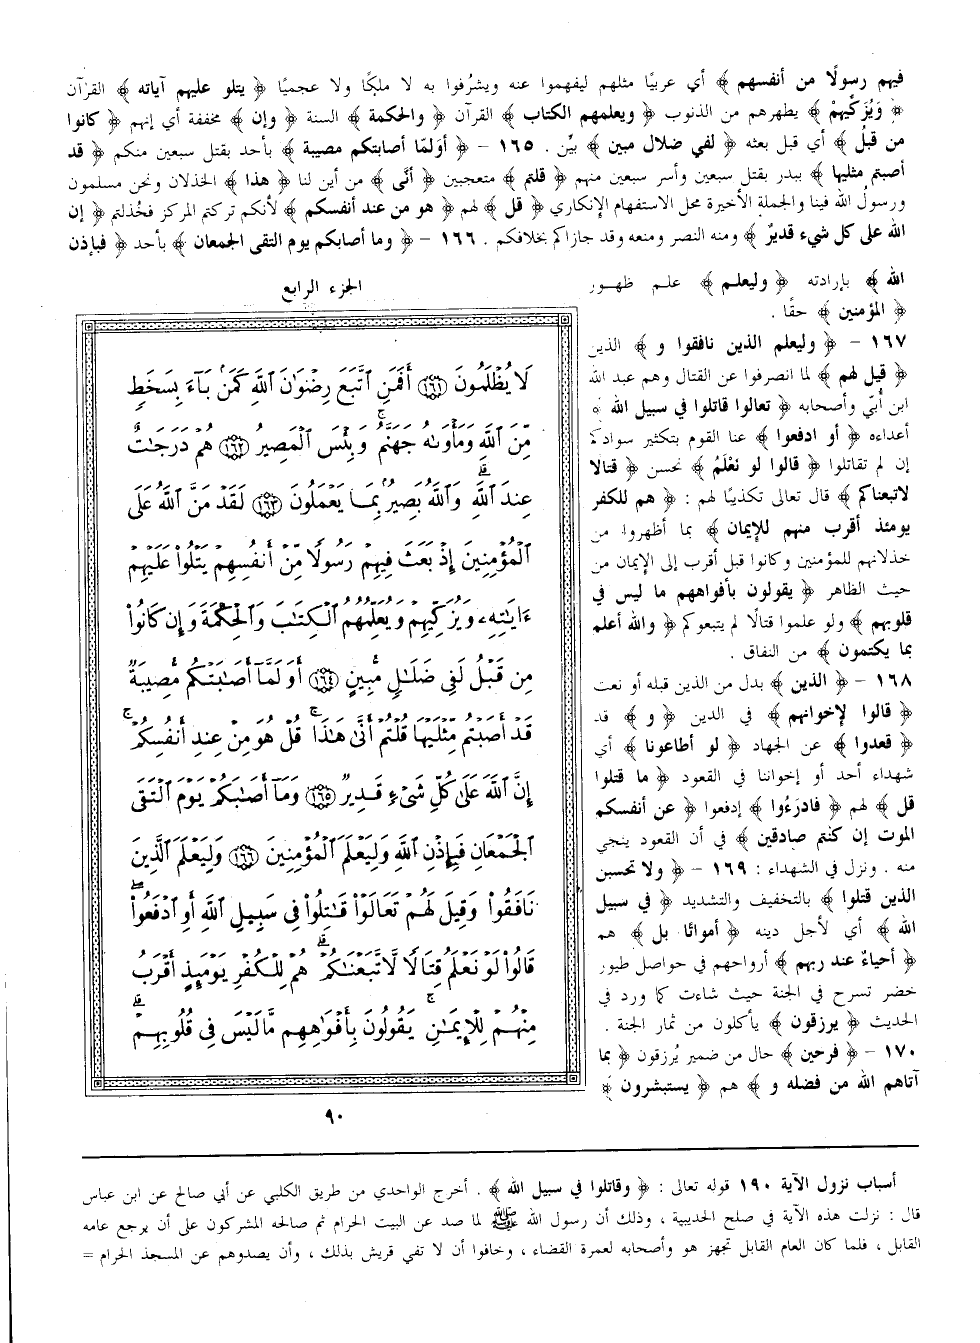 فيهم رسولًا من أنفسهم ﴾ أي عربيًا مثلهم ليفهموا عنه ويشرُفوا به لا ملكًا ولا عجميًا ﴿ يتلو عليهم آياته ﴾ القرآن
﴿ وَيُزَكِّيهِمْ ﴾ يطهرهم من الذنوب ﴿ ويعلمهم الكتاب ﴾ القرآن ﴿ والحكمة ﴾ السنة ﴿ وإن ﴾ مخففة أي إنهم ﴿ كانوا
من قبلُ ﴾ أي قبل بعثه ﴿ لفي ضلال مبين ﴾ بيِّن . ١٦٥ - ﴿ أوَلمّا أصابتكم مصيبة ﴾ بأحد بقتل سبعين منكم ﴿ قد
أصبتم مثليها ﴾ ببدر بقتل سبعين وأسر سبعين منهم ﴿ قلتم ﴾ متعجبين ﴿ أنَّى ﴾ من أين لنا ﴿ هذا ﴾ الخذلان ونحن مسلمون
ورسولُ الله فينا والجملة الأخيرة محل الاستفهام الإنكاري ﴿ قل ﴾ لهم ﴿ هو من عند أنفسكم ﴾ لأنكم تركتم المركز فخُذلتم ﴿ إن
الله على كل شيء قديرٌ ﴾ ومنه النصر ومنعه وقد جازاكم بخلافكم . ١٦٦ - ﴿ وما أصابكم يوم التقى الجمعان ﴾ بأحد ﴿ فبإذن
الله ﴾ بإرادته ﴿ وليعلم ﴾ علم ظهور
﴿ المؤمنين ﴾ حقًا .
١٦٧ - ﴿ وليعلم الذين نافقوا و ﴾ الذين
﴿ قيل لهم ﴾ لما انصرفوا عن القتال وهم عبد الله
ابن أُبيّ وأصحابه ﴿ تعالوا قاتلوا في سبيل الله ﴾
أعداءه ﴿ أو ادفعوا ﴾ عنا القوم بتكثير سوادكم
إن لم تقاتلوا ﴿ قالوا لو نعْلَمُ ﴾ نحسن ﴿ قتالا
لاتبعناكم ﴾ قال تعالى تكذيبًا لهم : ﴿ هم للكفر
يومئذ أقرب منهم للإيمان ﴾ بما أظهروا من
خذلانهم للمؤمنين وكانوا قبل أقرب إلى الإيمان من
حيث الظاهر ﴿ يقولون بأفواههم ما ليس في
قلوبهم ﴾ ولو علموا قتالًا لم يتبعوكم ﴿ والله أعلم
بما يكتمون ﴾ من النفاق .
١٦٨ - ﴿ الذين ﴾ بدل من الذين قبله أو نعت
﴿ قالوا لإخوانهم ﴾ في الدين ﴿ و ﴾ قد
﴿ قعدوا ﴾ عن الجهاد ﴿ لو أطاعونا ﴾ أي
شهداء أحد أو إخواننا في القعود ﴿ ما قتلوا
قل ﴾ لهم ﴿ فادرَءُوا ﴾ إدفعوا ﴿ عن أنفسكم
الموت إن كنتم صادقين ﴾ في أن القعود ينجي
منه . ونزل في الشهداء : ١٦٩ - ﴿ ولا تحسبن
الذين قتلوا ﴾ بالتخفيف والتشديد ﴿ في سبيل
الله ﴾ أي لأجل دينه ﴿ أمواتًا بل ﴾ هم
﴿ أحياءٌ عند ربهم ﴾ أرواحهم في حواصل طيور
خضر تسرح في الجنة حيث شاءت كما ورد في
الحديث ﴿ يرزقون ﴾ يأكلون من ثمار الجنة .
١٧٠ - ﴿ فرحين ﴾ حال من ضمير يُرزقون ﴿ بما
آتاهم الله من فضله و ﴾ هم ﴿ يستبشرون ﴾
الجزء الرابع
لَا يُظْلَمُونَ ١٦١ أَفَمَنِ ٱتَّبَعَ رِضْوَٰنَ ٱللَّهِ كَمَنۢ بَآءَ بِسَخَطٍ
مِّنَ ٱللَّهِ وَمَأْوَىٰهُ جَهَنَّمُ ۚ وَبِئْسَ ٱلْمَصِيرُ ١٦٢ هُمْ دَرَجَٰتٌ
عِندَ ٱللَّهِ ۗ وَٱللَّهُ بَصِيرٌۢ بِمَا يَعْمَلُونَ ١٦٣ لَقَدْ مَنَّ ٱللَّهُ عَلَى
ٱلْمُؤْمِنِينَ إِذْ بَعَثَ فِيهِمْ رَسُولًا مِّنْ أَنفُسِهِمْ يَتْلُوا۟ عَلَيْهِمْ
ءَايَٰتِهِۦ وَيُزَكِّيهِمْ وَيُعَلِّمُهُمُ ٱلْكِتَٰبَ وَٱلْحِكْمَةَ وَإِن كَانُوا۟
مِن قَبْلُ لَفِى ضَلَٰلٍ مُّبِينٍ ١٦٤ أَوَلَمَّآ أَصَٰبَتْكُم مُّصِيبَةٌ
قَدْ أَصَبْتُم مِّثْلَيْهَا قُلْتُمْ أَنَّىٰ هَٰذَا ۖ قُلْ هُوَ مِنْ عِندِ أَنفُسِكُمْ ۗ
إِنَّ ٱللَّهَ عَلَىٰ كُلِّ شَىْءٍ قَدِيرٌ ١٦٥ وَمَآ أَصَٰبَكُمْ يَوْمَ ٱلْتَقَى
ٱلْجَمْعَانِ فَبِإِذْنِ ٱللَّهِ وَلِيَعْلَمَ ٱلْمُؤْمِنِينَ ١٦٦ وَلِيَعْلَمَ ٱلَّذِينَ
نَافَقُوا۟ ۚ وَقِيلَ لَهُمْ تَعَالَوْا۟ قَٰتِلُوا۟ فِى سَبِيلِ ٱللَّهِ أَوِ ٱدْفَعُوا۟ ۖ
قَالُوا۟ لَوْ نَعْلَمُ قِتَالًا لَّٱتَّبَعْنَٰكُمْ ۗ هُمْ لِلْكُفْرِ يَوْمَئِذٍ أَقْرَبُ
مِنْهُمْ لِلْإِيمَٰنِ ۚ يَقُولُونَ بِأَفْوَٰهِهِم مَّا لَيْسَ فِى قُلُوبِهِمْ ۗ
٩٠
أسباب نزول الآية ١٩٠ قوله تعالى : ﴿ وقاتلوا في سبيل الله ﴾ . أخرج الواحدي من طريق الكلبي عن أبي صالح عن ابن عباس
قال : نزلت هذه الآية في صلح الحديبية ، وذلك أن رسول الله ﷺ لما صد عن البيت الحرام ثم صالحه المشركون على أن يرجع عامه
القابل ، فلما كان العام القابل تجهز هو وأصحابه لعمرة القضاء ، وخافوا أن لا تفي قريش بذلك ، وأن يصدوهم عن المسجد الحرام =